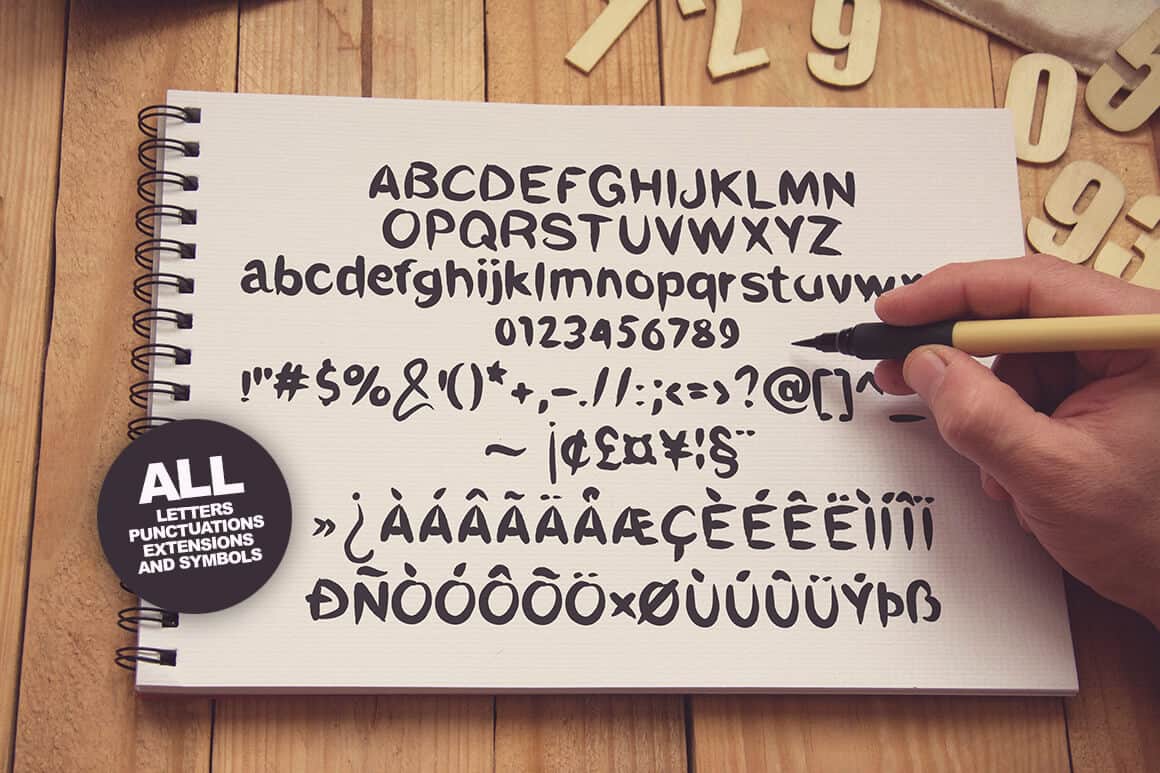 7 2 9
0 5
9 3
ABCDEFGHIJKLMN
OPQRSTUVWXYZ
abcdefghijklmnopqrstuvwx
0123456789
!"#$%&'()*+,-./\/:;<=>?@[]^_
~ ¡¢£¤¥¦§¨
»¿ÀÁÂÃÄÅÆÇÈÉÊËÌÍÎÏ
ÐÑÒÓÔÕÖ×ØÙÚÛÜÝÞß
ALL
LETTERS
PUNCTUATIONS
EXTENSIONS
AND SYMBOLS